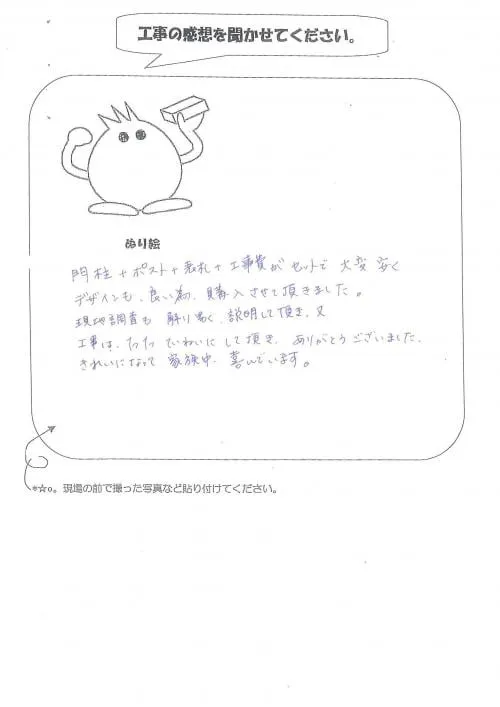 工事の感想を聞かせてください。
ぬり絵
門柱+ポスト+表札+工事費がセットで大変安く
デザインも、良い為、購入させて頂きました。
現地調査も 解り易く、説明して頂き、又
工事は、 ていねいにして頂き、ありがとうございました。
きれいになって 家族中、喜んでいます。
*☆o。現場の前で撮った写真など貼り付けてください。